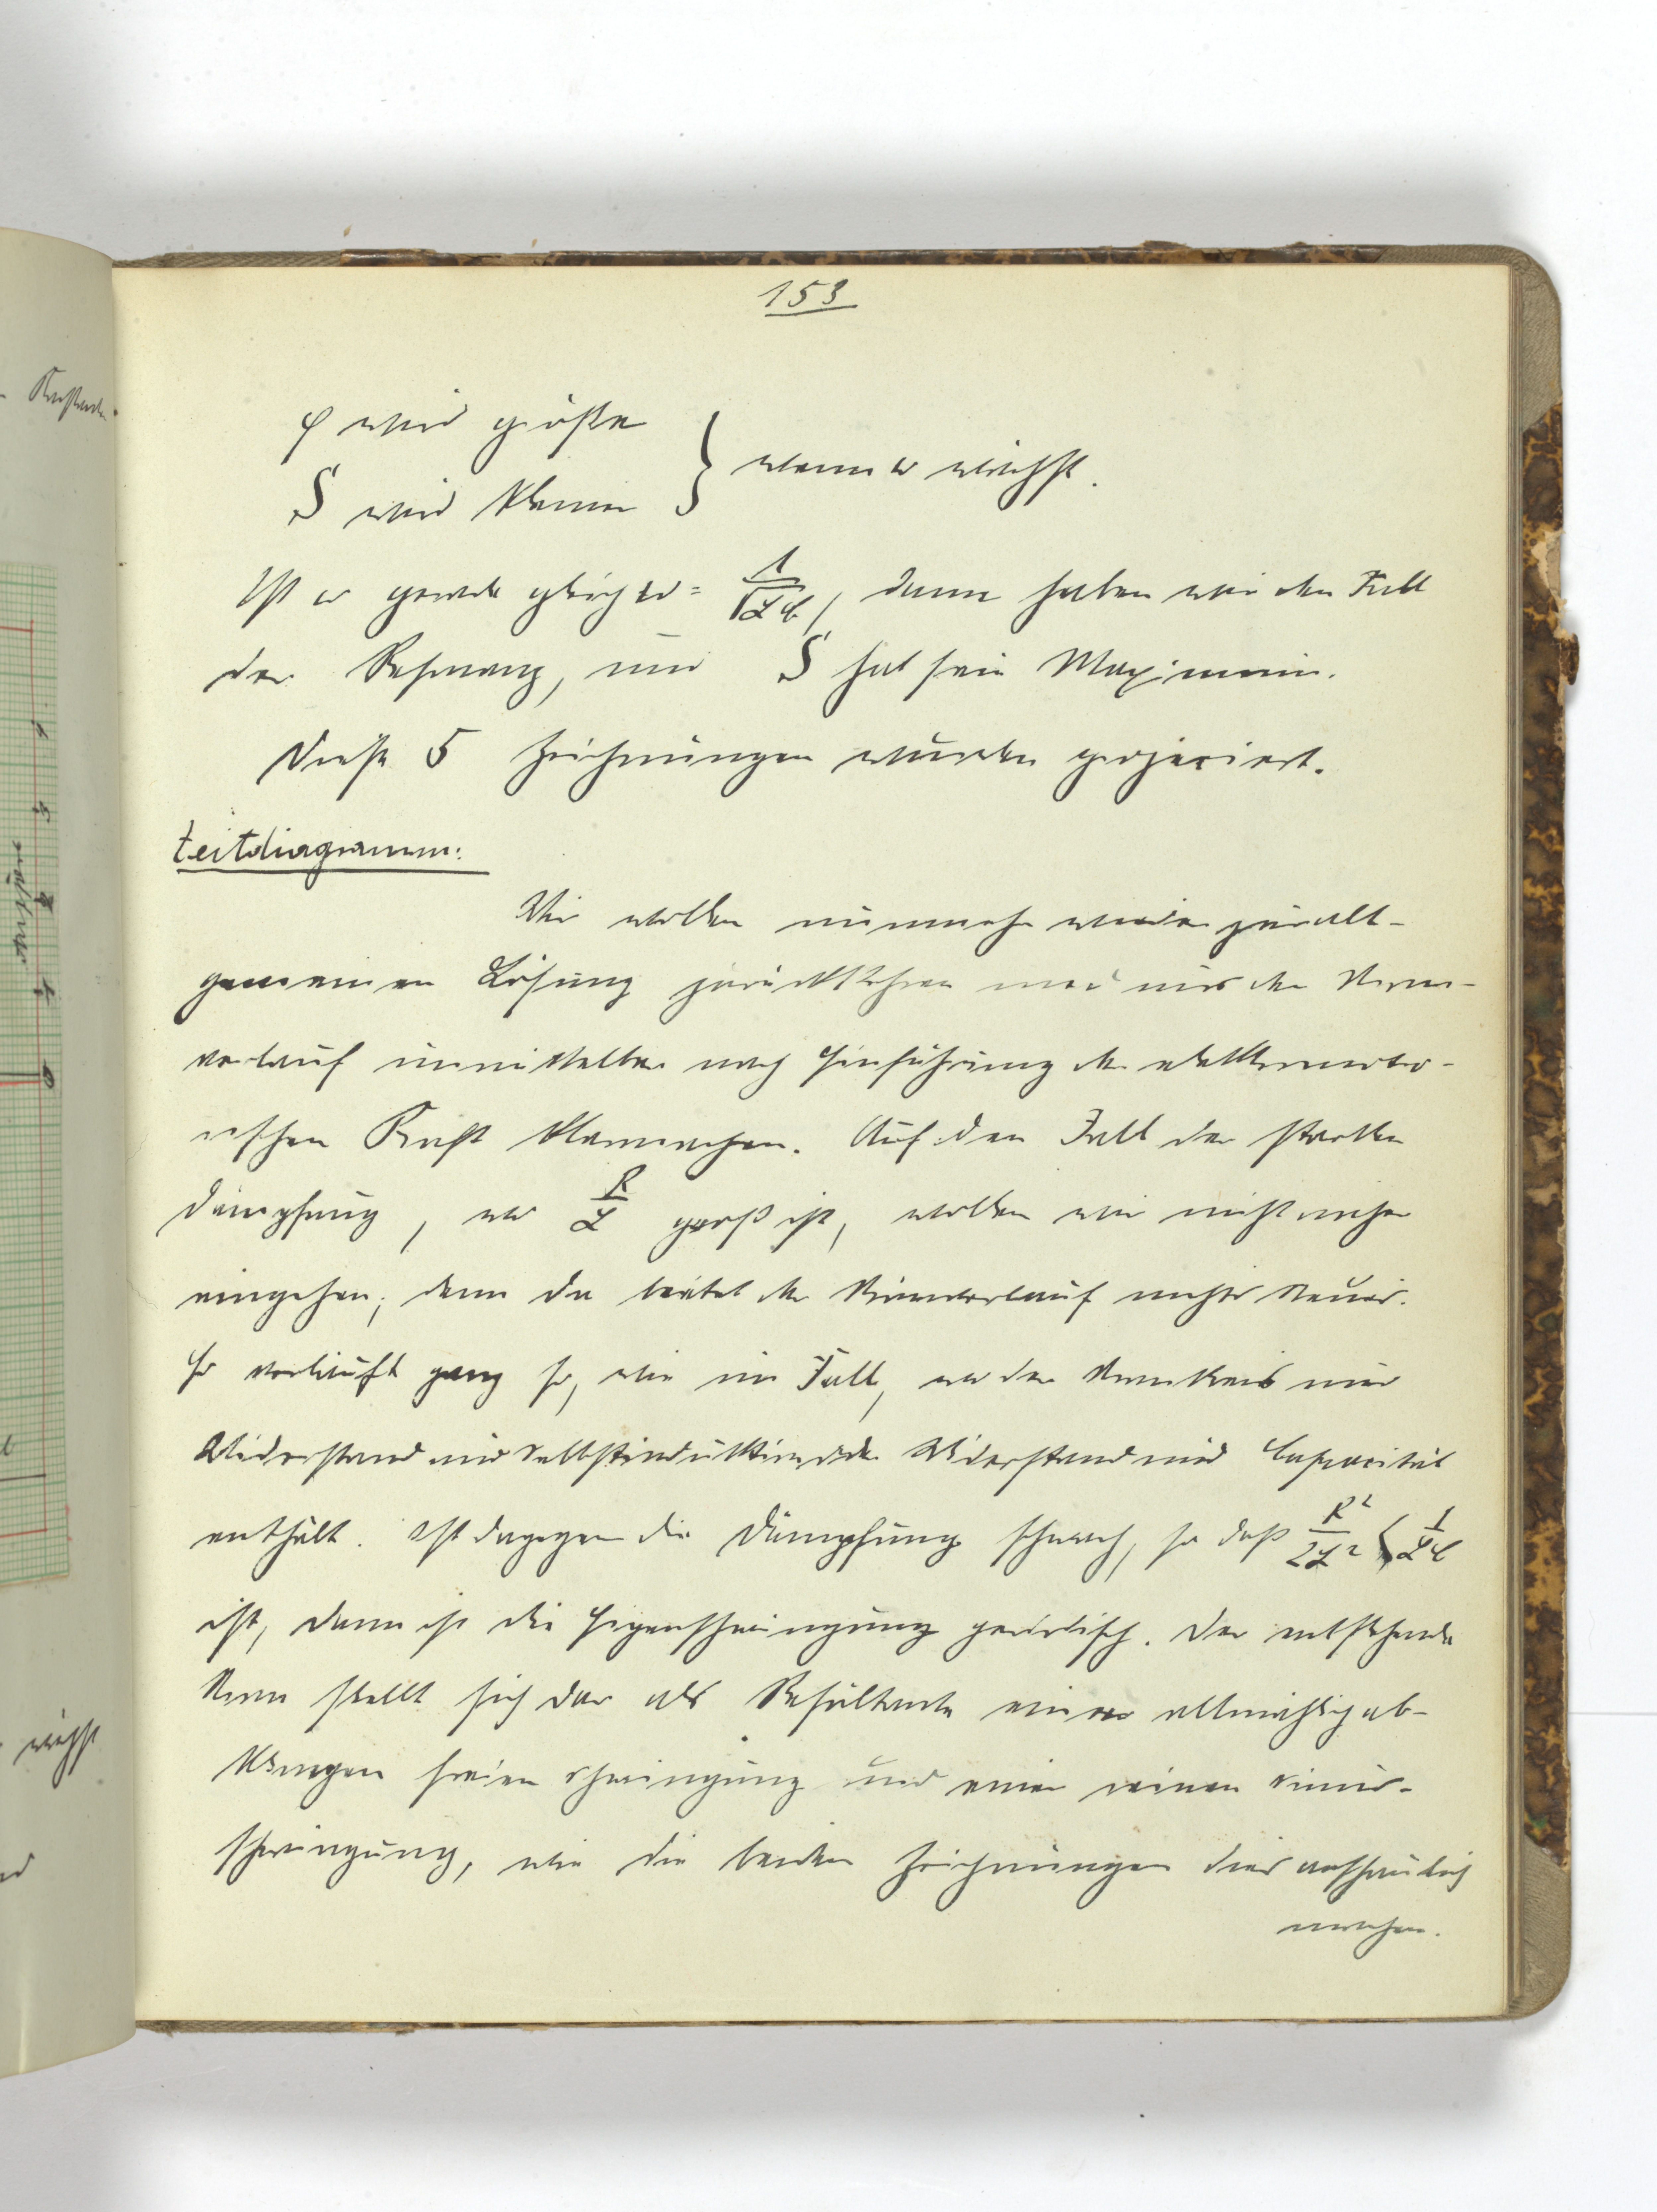 153
φ wird größer
S wird kleiner } wenn ω wächst.
Ist ω gerade gleich ω = 1/√LC, dann haben wir den Fall
der Resonanz, und S hat sein Maximum.
Diese 5 Zeichnungen wurden projiciert.
Zeitdiagramm:
Wir wollen nunmehr wieder zur all-
gemeinen Lösung zurückkehren und uns den Strom-
verlauf unmittelbar nach Einführung der elektromoto-
rischen Kraft klarmachen. Auf den Fall der starken
Dämpfung, wo R/L groß ist, wollen wir nicht näher
eingehen; denn da bietet der Stromverlauf nichts Neues.
Er verläuft ganz so, wie im Fall, wo der Stromkreis nur
Widerstand und Selbstinduktion oder Widerstand und Capacität
enthält. Ist dagegen die Dämpfung schwach, so daß R²/2L² < 1/LC
ist, dann ist die Eigenschwingung periodisch. Der entstehende
Strom stellt sich dar als Resultante einer allmählich ab-
klingen freien Schwingung und einer reinen Sinus-
schwingung, wie die beiden Zeichnungen dies anschaulich
machen.
Konstante
wächst